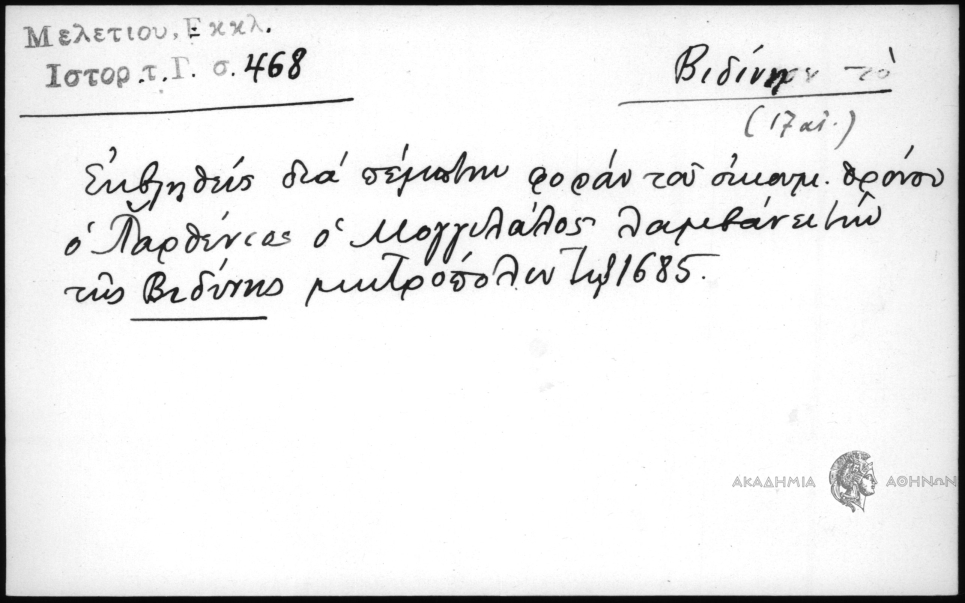 Μελετιου, Εκκλ.
Ιστορ.τ.Γ. σ. 468
Βιδύνην τὸ
(17 αἰ.)
Ἐκβληθεὶς διὰ πέμπτην φορὰν τοῦ οἰκουμ. θρόνου
ὁ Παρθένιος ὁ Μογγιλάλος λαμβάνει τὴν
τῆς Βιδύνης μητρόπολιν τῷ 1685.
ΑΚΑΔΗΜΙΑ ΑΘΗΝΩΝ